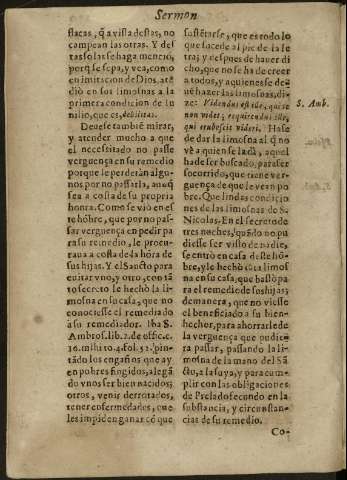 Sermon
flacas, q̃ a vista destas, no
campean las otras. Y des
tas solas se haga menciõ,
porq̃ se sepa, y vea, como
en imitacion de Dios, atẽ
diò en sus limosnas a la
primera condicion de su
nilio, que es, debilitas.
Deuese tambiẽ mirar,
y atender mucho a que
el necessitado no passe
verguença en su remedio
porque le perderàn algu-
nos por no passarla, aunq̃
sea a costa de su propria
honra. Como se viò en es
te hõbre, que por no pas-
sar verguença en pedir pa
ra su remedio, le procu-
raua a costa de la hõra de
sus hijas. Y el Sancto para
euitar vno, y otro, con tã
to secreto le hechò la li-
mosna en su casa, que no
conociesse el remediado
à su remediador. Iba S.
Ambros. lib. 2. de offic. c.
16. mihi to. 4. fol. 32. pin-
tãdo los engaños que ay
en pobres fingidos, alegã
do vnos ser bien nacidos;
otros, venir derrotados,
tener enfermedades, que
les impiden ganar cõ que
sustẽtarse, que es todo lo
que sucede al pie de la le
tra; y despues de hauer di
cho, que no se ha de creer
a todos, y a quienes se de-
uẽ hazer las limosnas, di-
ze: Videndus est ille, qui te
non videt, requirendus ille,
qui erubescit videri. Hase
de dar la limosna al q̃ no
vè a quien se la dà, aquel
ha de ser buscado, para ser
socorrido, que tiene ver-
guença de que le vean po
bre. Que lindas condicio
nes de las limosnas de S.
Nicolas. En el secreto de
tres noches, quãdo no pu
diesse ser visto de nadie,
se entrò en casa deste hõ-
bre, y le hechò tãta limos
na en su casa, que bastò pa
ra el remedio de sus hijas;
demanera, que no viesse
el beneficiado a su bien-
hechor, para ahorrarle de
la verguença que pudiera
passar, passando la li-
mosna de la mano del Sã
cto, a la suya, y para cum-
plir con las obligaciones
de Prelado fecondo en la
substancia, y circunstan-
cias de su remedio.
S. Amb.
Co-